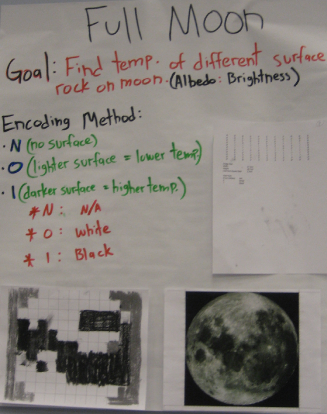 Full Moon
Goal: Find temp. of different surface
rock on moon. (Albedo: Brightness)
Encoding Method:
· N (no surface)
· O (lighter surface = lower temp)
· I (darker surface = higher temp.)
* N : N/A
* O : White
* I : Black